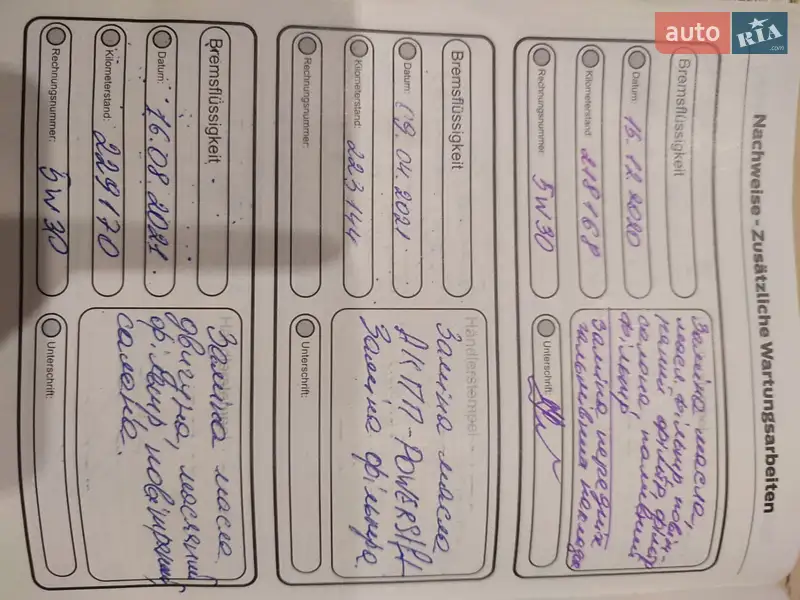 auto
RIA
.com
Nachweise - Zusätzliche Wartungsarbeiten
Bremsflüssigkeit
Datum: 15.12.2020
Kilometerstand: 218168
Rechnungsnummer: 5W30
Заміна масла,
фільтр
фільтр
салона, паливний
фільтр
Заміна передніх
Unterschrift:
Bremsflüssigkeit
Datum: 09.04.2021
Kilometerstand: 223144
Rechnungsnummer:
Händlerstempel
Заміна масла
АКПП-POWERSHIFT
Заміна фільтра
Unterschrift:
Bremsflüssigkeit
Datum: 16.08.2021
Kilometerstand: 229170
Rechnungsnummer: 5W30
Заміна масла
двигуна, масляний
фільтр, повітряний
салона.
Unterschrift: